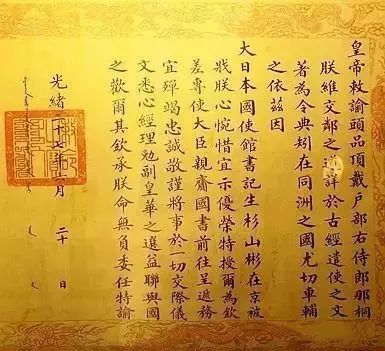 皇帝敕諭頭品頂戴戶部右侍郎那桐
朕維交鄰之道詳於古經遣使之文
著為令典矧在同洲之國尤切車輔
之依茲因
大日本國使館書記生杉山彬在京被
戕朕心惋惜宜示優榮特授爾為欽
差專使大臣親齎國書前往呈遞務
宜殫竭忠誠敬謹將事於一切交際儀
文悉心經理勉副皇華之選益聯與國
之歡爾其欽承朕命無負委任特諭
光緒 十七年 月二十日